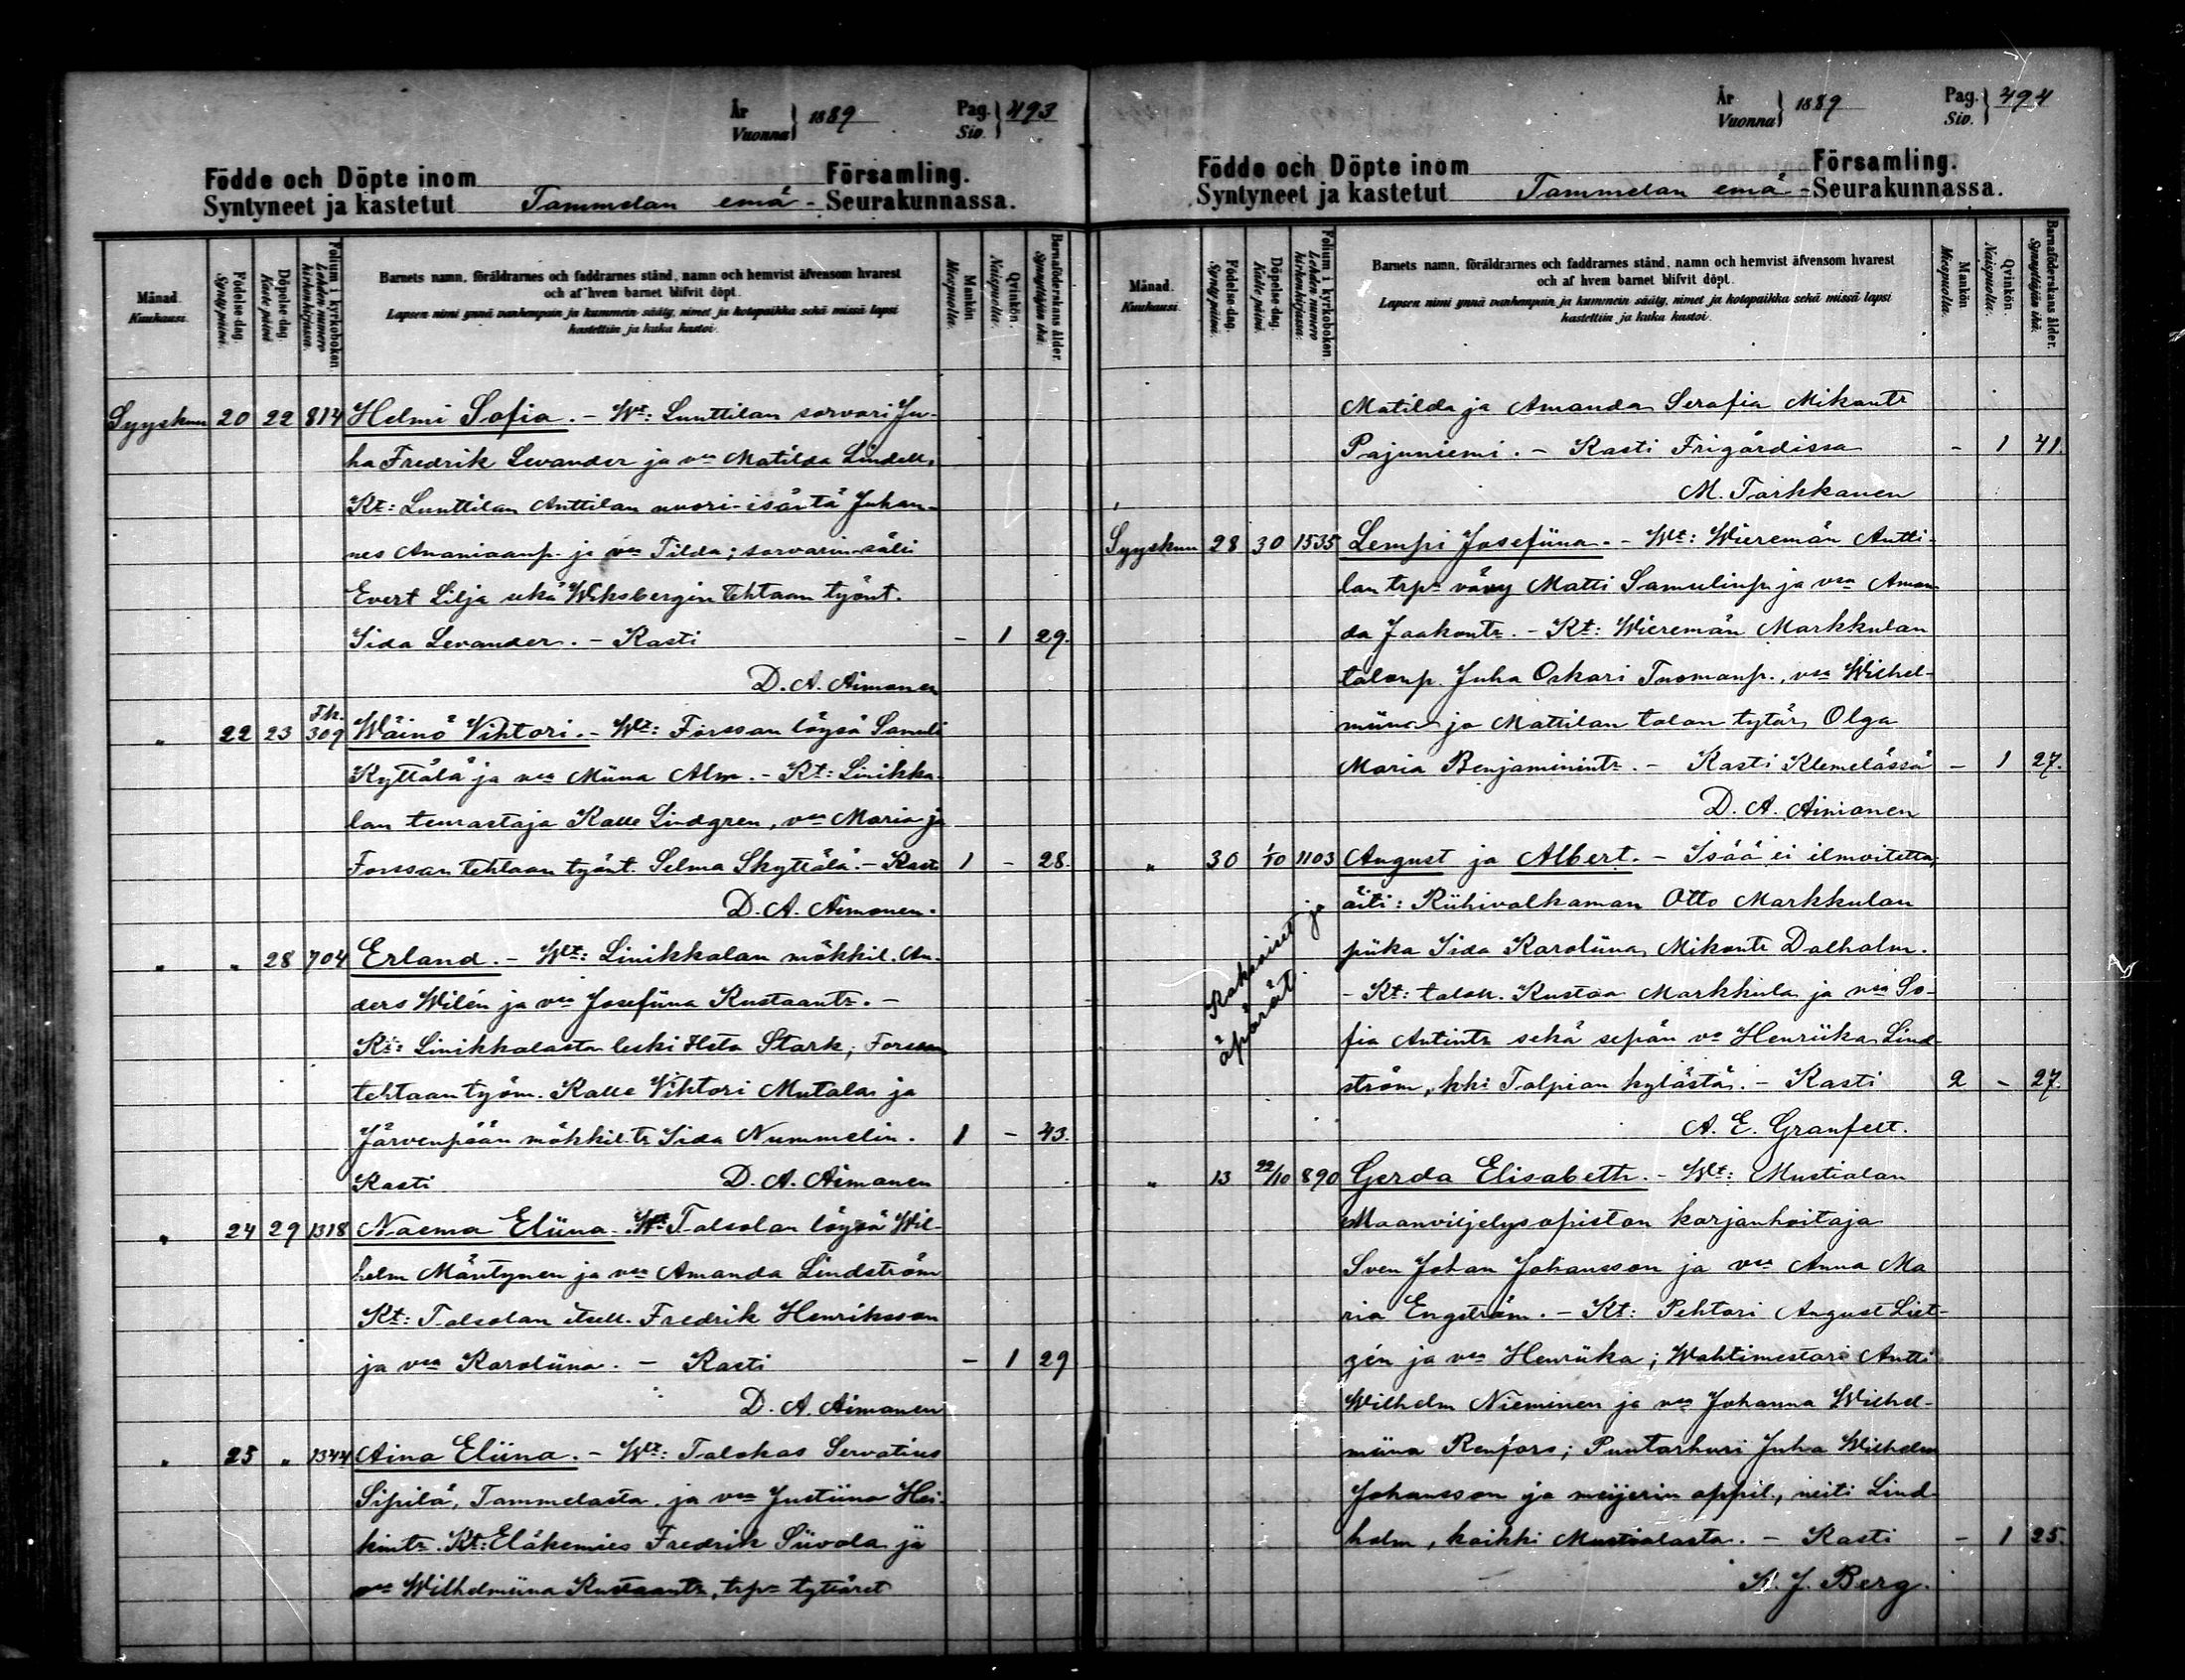 År
Vuonna } 1889 Pag. Siv. } 493
Födde och Döpte inom Församling.
Syntyneet ja kastetut Tammelan emä - Seurakunnassa.
Månad. Kuukausi.
Födelse-dag. Synty päivä.
Döpelse-dag. Kaste päivä
Folium i kyrkoboken Lehden numero kirkonkirjassa.
Barnets namn, föräldrarnes och faddrarnes stånd, namn och hemvist äfvensom hvarest
och af hvem barnet blifvit döpt.
Lapsen nimi ynnä vanhempain ja kummein sääty, nimet ja kotopaikka sekä missä lapsi
kastettiin ja kuka kastoi.
Mankön Miespuolia.
Qvinkön. Naispuolia.
Barnaföderskans ålder. Synnyttäjän ikä.
Syyskuu 20 22 814 Helmi Sofia. - Wt: Lunttilan sorvari Ju-
ha Fredrik Levander ja vsa Matilda Lindell.
Kt: Lunttilan Anttilan nuori-isäntä Juhan-
nes Ananiaanp. ja vsa Tilda; sorvarin-sälli
Evert Lilja sekä Wiksbergin tehtaan työnt.
Iida Levander. - Kasti - 1 29.
D. A. Aimonen
" 22 23 Fk. 309 Wäinö Vihtori. - Wt: Forssan löysä Samuli
Kyttälä ja vsa Miina Alm. - Kt: Linikka-
lan teurastaja Kalle Lindgren, vsa Maria ja
Forssan tehtaan työnt. Selma Skyttälä. - Kasti 1 - 28.
D. A. Aimonen.
" " 28 704 Erland. - Wt: Linikkalan mökkil. An-
ders Wilén ja vsa Josefiina Kustaantr. -
Kt: Linikkalasta leski Heta Stark, Forssan
tehtaan työm. Kalle Vihtori Mutala ja
Järvenpään mökkil. tr Iida Nummelin. 1 - 43.
Kasti D. A. Aimonen
" 24 29 1318 Naema Eliina. Wt: Talsolan löysä Wil-
helm Mäntynen ja vsa Amanda Lindström
Kt: Talsolan itsell. Fredrik Henriksson
ja vsa Karoliina. - Kasti - 1 29
D. A. Aimonen
" 25 " 1344 Aina Eliina. - Wt: Talokas Servatius
Sipilä, Tammelasta, ja vsa Justiina Hei-
kintr. Kt: Eläkemies Fredrik Siivola ja
vsa Wilhelmiina Kustaantr, trp:n tyttäret
År
Vuonna } 1889 Pag. Siv. } 494
Födde och Döpte inom Församling.
Syntyneet ja kastetut Tammelan emä - Seurakunnassa.
Månad. Kuukausi.
Födelse-dag. Synty päivä.
Döpelse-dag. Kaste päivä.
Folium i kyrkoboken Lehden numero kirkonkirjassa.
Barnets namn, föräldrarnes och faddrarnes stånd, namn och hemvist äfvensom hvarest
och af hvem barnet blifvit döpt.
Lapsen nimi ynnä vanhempain ja kummein sääty, nimet ja kotopaikka sekä missä lapsi
kastettiin ja kuka kastoi.
Mankön Miespuolia.
Qvinkön. Naispuolia.
Barnaföderskans ålder. Synnyttäjän ikä.
Matilda ja Amanda Serafia Mikontr
Pajuniemi. - Kasti Frigårdissa - 1 41.
M. Tarkkanen
Syyskuu 28 30 1535 Lempi Josefiina. - Wt: Wieremän Antti-
lan trp:n vävy Matti Samulinp. ja vsa Aman
da Jaakontr. - Kt: Wieremän Markkulan
talonp. Juha Oskari Tuomanp., vsa Wilhel-
miina ja Mattilan talon tytär Olga
Maria Benjaminintr. - Kasti Klemelässä - 1 27.
D. A. Aimonen
" 30 1/10 1103 August ja Albert. - Isää ei ilmoitettu,
äiti: Riihivalkaman Otto Markkulan
piika Iida Karoliina Mikontr Dalholm.
- Kt: talok. Kustaa Markkula ja vsa So-
fia Antintr sekä sepän va Henriika Lind-
ström, kki Talpian kylästä. - Kasti 2 - 27.
Kaksoiset ja
äpärät.
A. E. Granfelt.
" 13 22/10 890 Gerda Elisabeth. - Wt: Mustialan
Maanviljelysopiston karjanhoitaja
Sven Johan Johansson ja vsa Anna Ma
ria Engström. - Kt: Pehtori August Liet-
zén ja vsa Henriika; Wahtimestari Antti
Wilhelm Nieminen ja vsa Johanna Wilhel-
miina Renfors; Puutarhuri Juha Wilhelm
Johansson ja meijerin oppil., neiti Lind-
holm, kaikki Mustialasta. - Kasti - 1 25.
K. J. Berg.